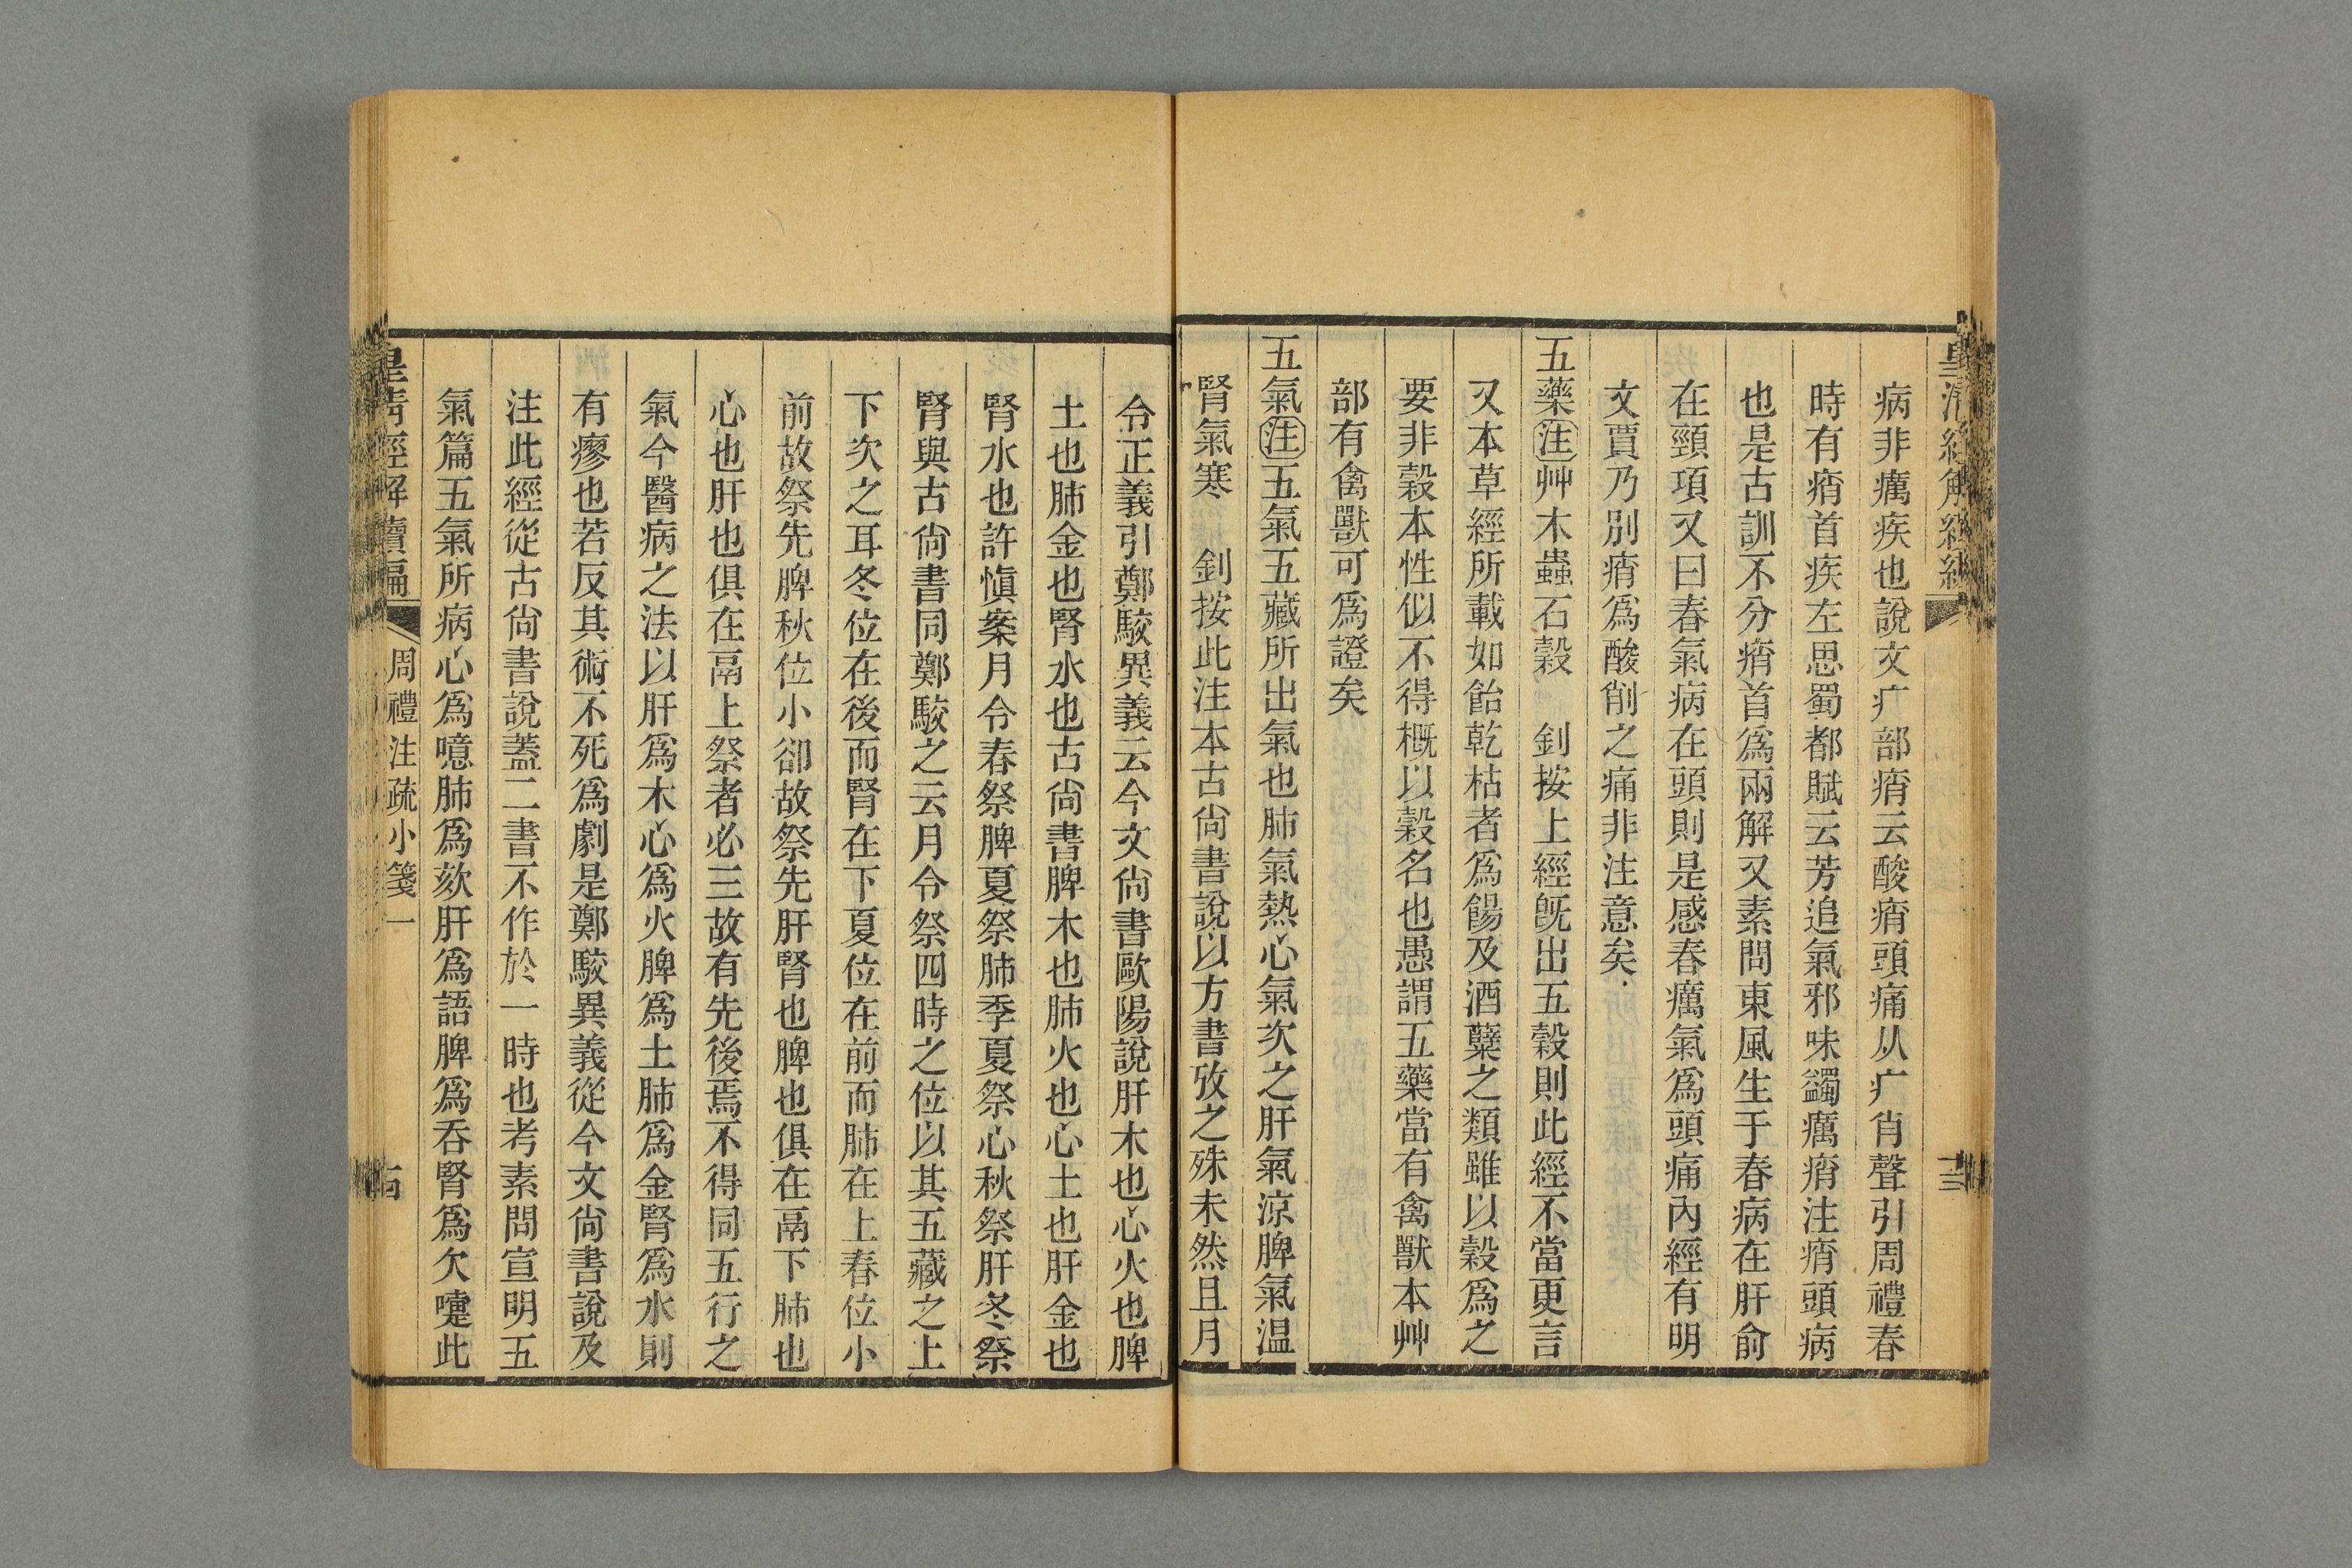 皇清經解續編
病非癘疾也說文疒部痟云酸痟頭痛从疒肖聲引周禮春
時有痟首疾左思蜀都賦云芳追氣邪味蠲癘痟注痟頭病
也是古訓不分痟首爲兩解又素問東風生于春病在肝俞
在頸項又曰春氣病在頭則是感春癘氣爲頭痛內經有明
文賈乃別痟爲酸削之痛非注意矣
五藥注艸木蟲石穀 釗按上經旣出五穀則此經不當更言
又本草經所載如飴乾枯者爲餳及酒櫱之類雖以穀爲之
要非穀本性似不得概以穀名也愚謂五藥當有禽獸本艸
部有禽獸可爲證矣
五氣注五氣五藏所出氣也肺氣熱心氣次之肝氣涼脾氣温
腎氣寒 釗按此注本古尙書說以方書攷之殊未然且月
令正義引鄭駮異義云今文尙書歐陽說肝木也心火也脾
土也肺金也腎水也古尙書脾木也肺火也心土也肝金也
腎水也許愼案月令春祭脾夏祭肺季夏祭心秋祭肝冬祭
腎與古尙書同鄭駮之云月令祭四時之位以其五藏之上
下次之耳冬位在後而腎在下夏位在前而肺在上春位小
前故祭先脾秋位小卻故祭先肝腎也脾也俱在鬲下肺也
心也肝也俱在鬲上祭者必三故有先後焉不得同五行之
氣今醫病之法以肝爲木心爲火脾爲土肺爲金腎爲水則
有瘳也若反其術不死爲劇是鄭駮異義從今文尙書說及
注此經從古尙書說蓋二書不作於一時也考素問宣明五
氣篇五氣所病心爲噫肺爲欬肝爲語脾爲吞腎爲欠嚏此
皇清經解續編
周禮注疏小箋一